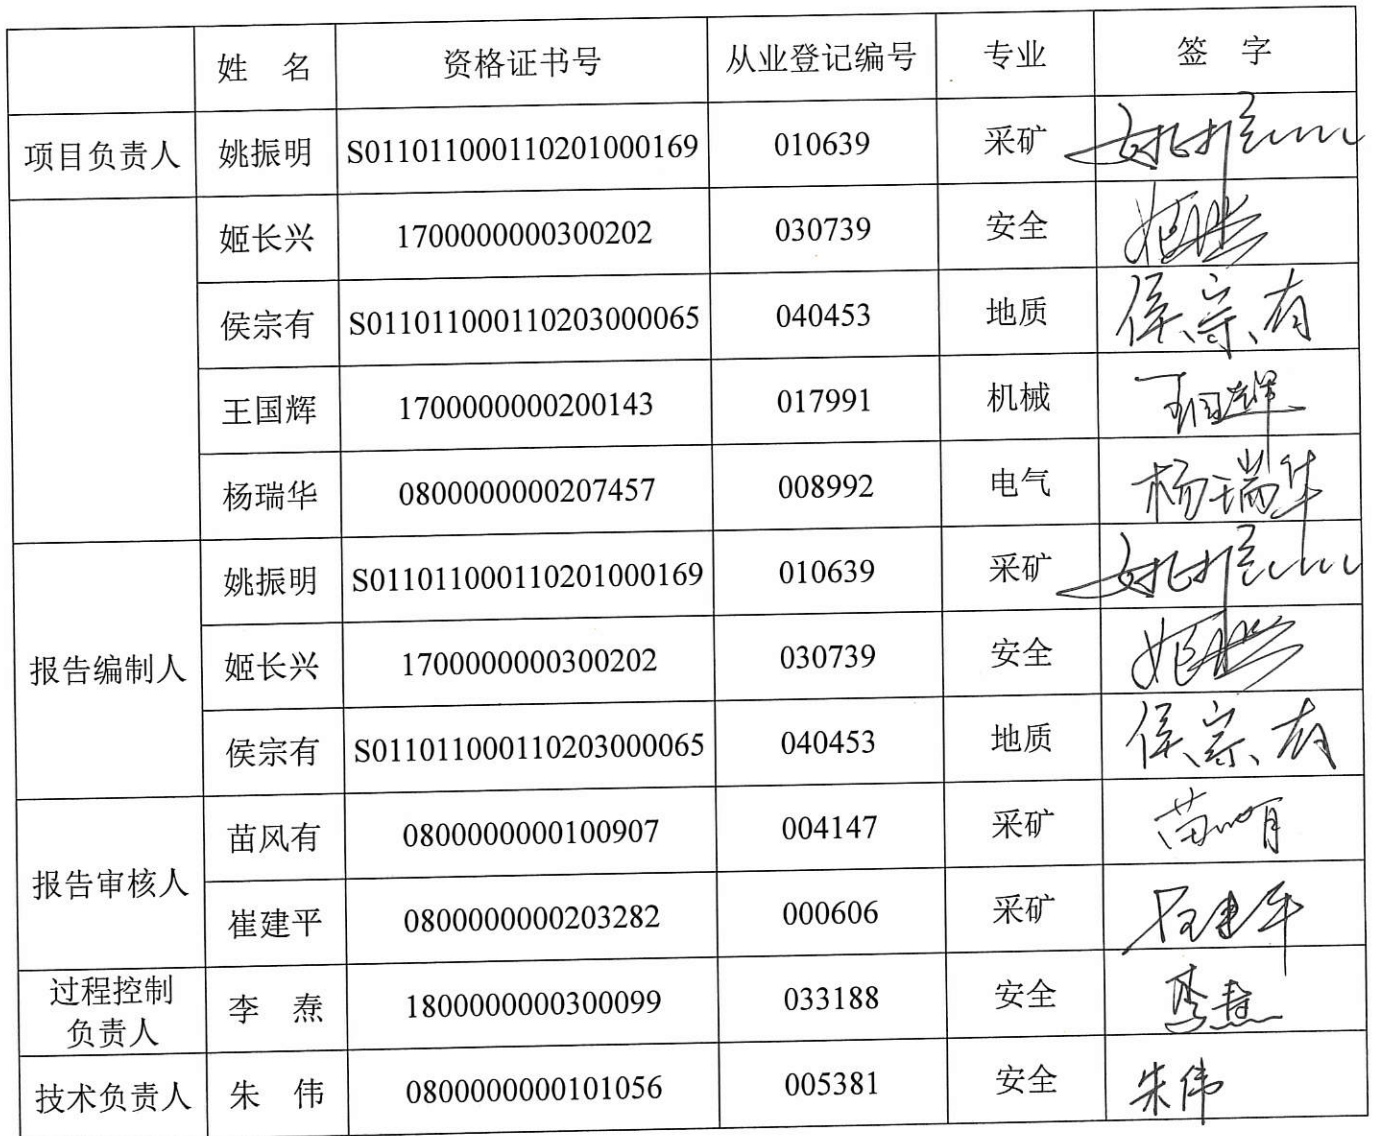 姓 名 资格证书号 从业登记编号 专业 签 字
项目负责人 姚振明 S011011000110201000169 010639 采矿 姚振明
姬长兴 1700000000300202 030739 安全 姬长兴
侯宗有 S011011000110203000065 040453 地质 侯宗有
王国辉 1700000000200143 017991 机械 王国辉
杨瑞华 0800000000207457 008992 电气 杨瑞华
报告编制人 姚振明 S011011000110201000169 010639 采矿 姚振明
姬长兴 1700000000300202 030739 安全 姬长兴
侯宗有 S011011000110203000065 040453 地质 侯宗有
报告审核人 苗风有 0800000000100907 004147 采矿 苗风有
崔建平 0800000000203282 000606 采矿 崔建平
过程控制
负责人 李 焘 1800000000300099 033188 安全
技术负责人 朱 伟 0800000000101056 005381 安全 朱伟